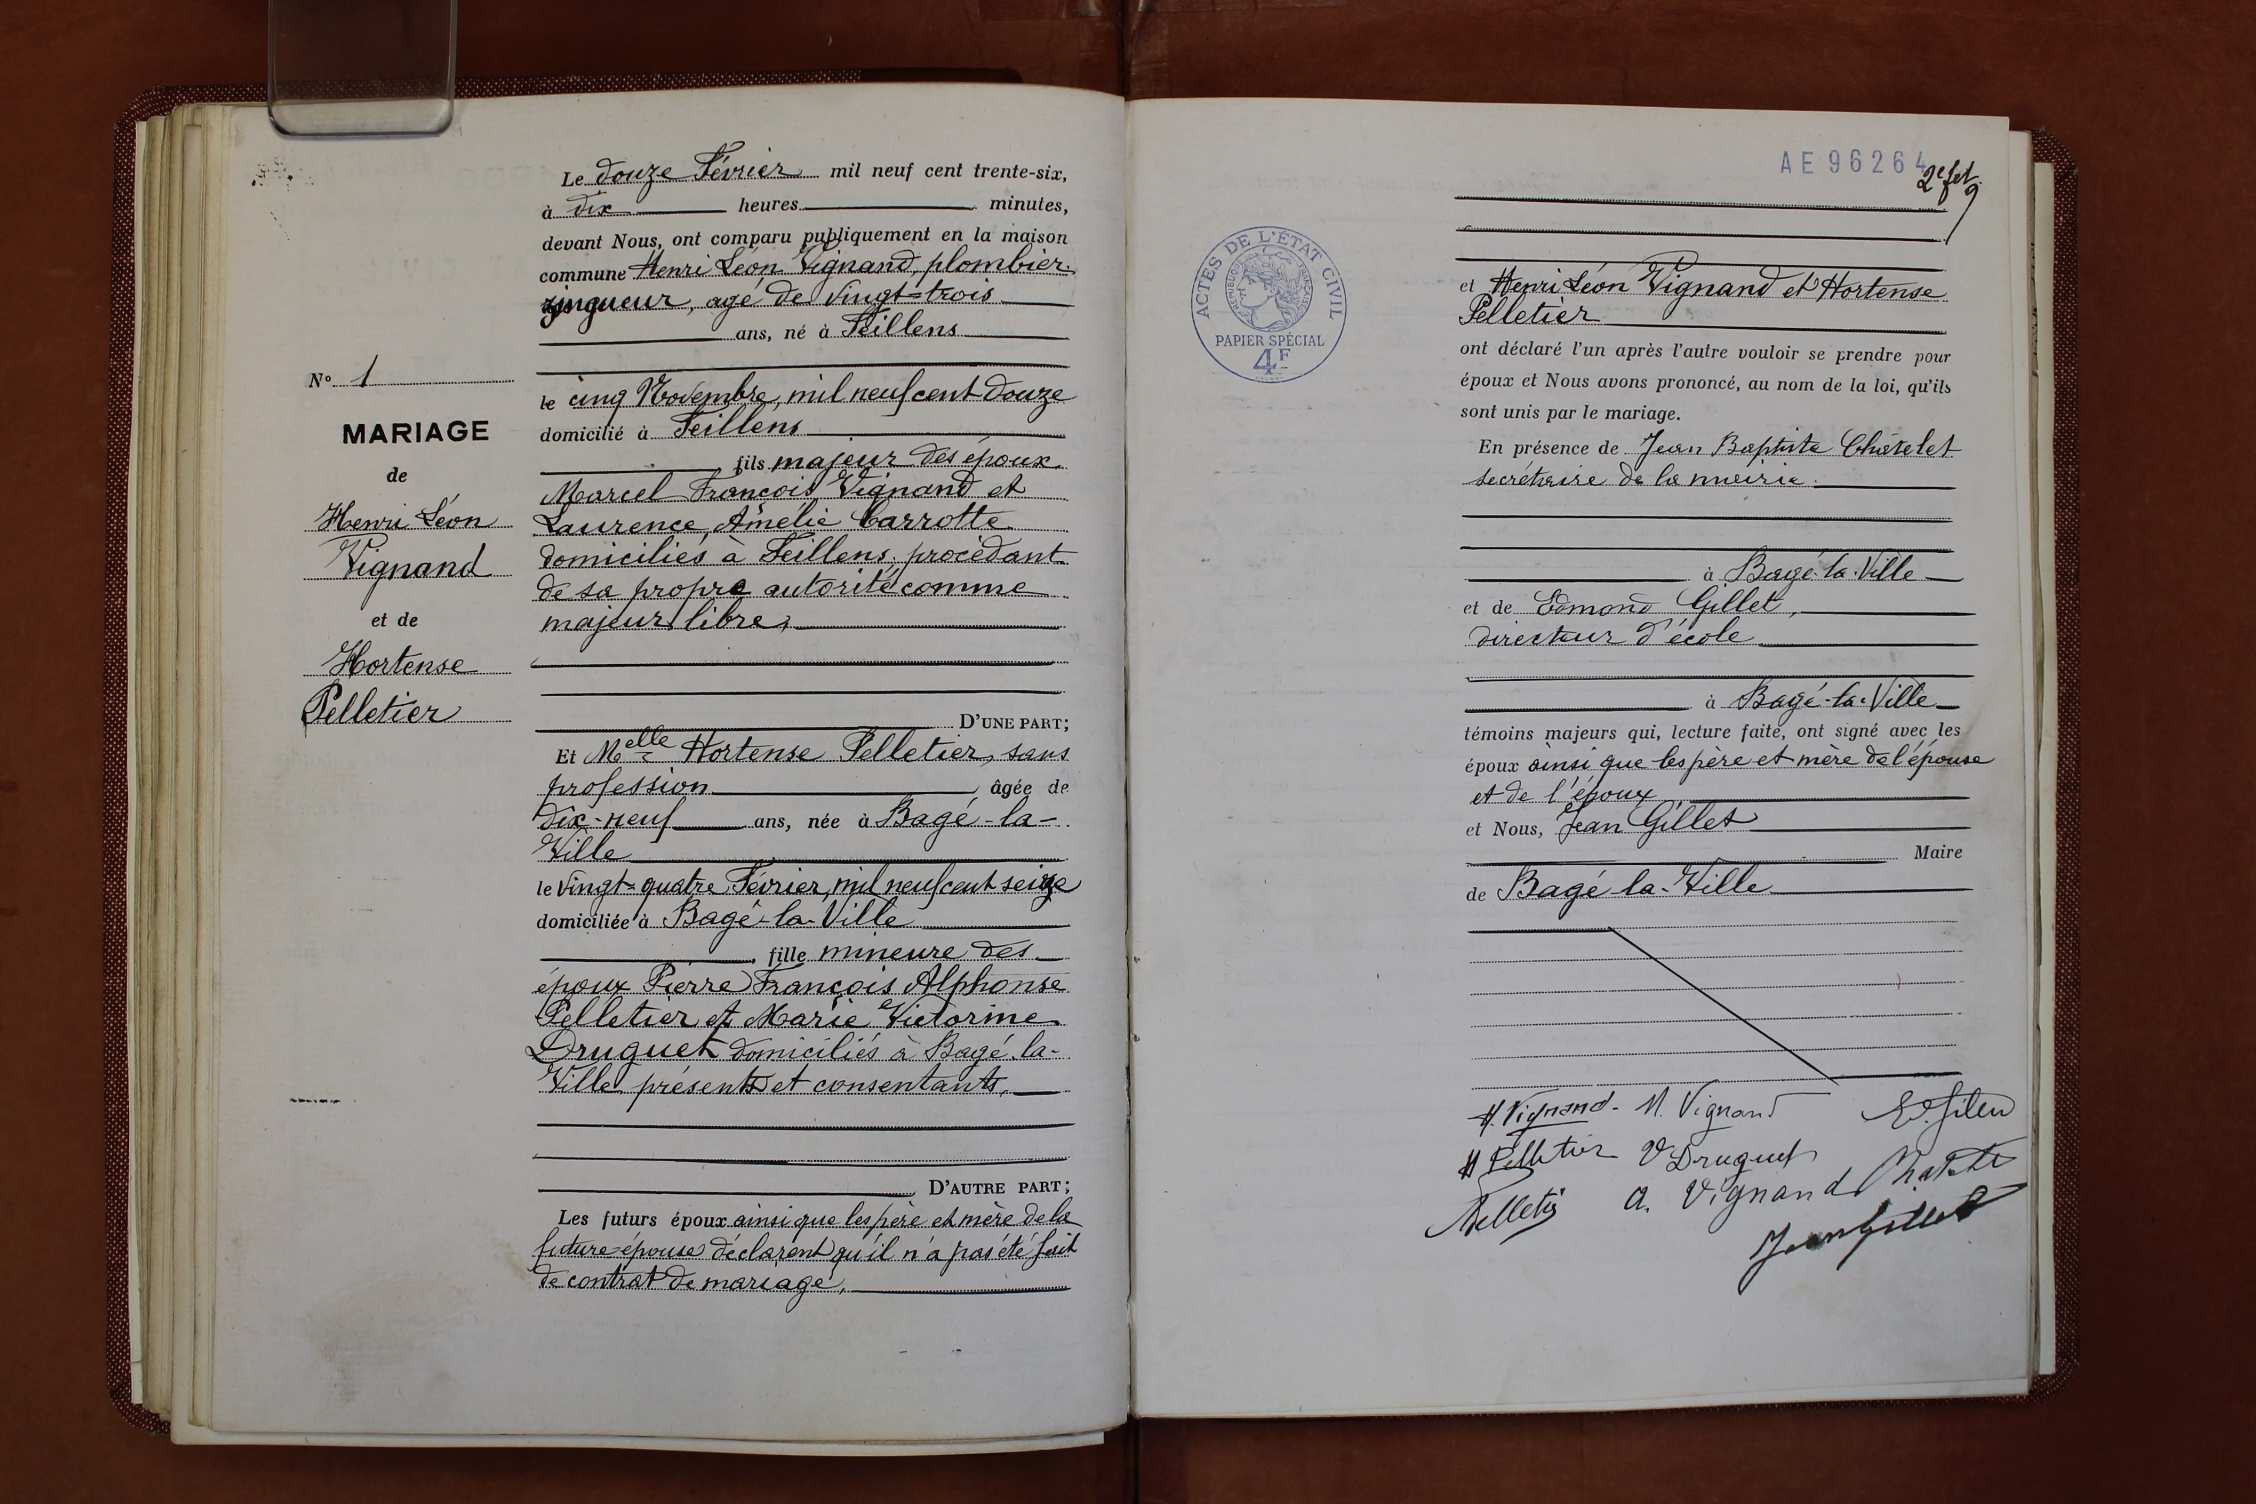 Le douze Février mil neuf cent trente-six,
à dix heures minutes,
devant Nous, ont comparu publiquement en la maison
commune Henri Léon Vignand, plombier-
zingueur, agé de vingt-trois
ans, né à Feillens
le cinq Novembre, mil neuf cent douze
domicilié à Feillens
fils majeur des époux
Marcel François Vignand et
Laurence, Amélie Carrotte
domiciliés à Feillens, procédant
de sa propre autorité comme
majeur libre,
D'UNE PART;
Et Melle Hortense Pelletier, sans
profession, âgée de
dix-neuf ans, née à Bagé-la-
Ville
le vingt-quatre Février, mil neuf cent seize
domiciliée à Bagé-la-Ville
, fille mineure des
époux Pierre François Alphonse
Pelletier et Marie Victorine
Druguet domiciliés à Bagé-la-
Ville présents et consentants,
D'AUTRE PART;
Les futurs époux ainsi que les père et mère de la
future épouse déclarent qu'il n'a pas été fait
de contrat de mariage,
N° 1
MARIAGE
de
Henri Léon
Vignand
et de
Hortense
Pelletier
AE 96264
2e fet
ACTES DE L'ÉTAT CIVIL
RÉPUBLIQUE FRANÇAISE
PAPIER SPÉCIAL
4F
et Henri Léon Vignand et Hortense
Pelletier
ont déclaré l'un après l'autre vouloir se prendre pour
époux et Nous avons prononcé, au nom de la loi, qu'ils
sont unis par le mariage.
En présence de Jean Baptiste Châtelet
secrétaire de la mairie
à Bagé-la-Ville
et de Edmond Gillet,
directeur d'école
à Bagé-la-Ville
témoins majeurs qui, lecture faite, ont signé avec les
époux ainsi que les père et mère de l'épouse
et de l'époux
et Nous, Jean Gillet
Maire
de Bagé la-Ville
H. Vignand - M. Vignand
H Pelletier V Druguet
Pelletier A. Vignand
Jean Gillet